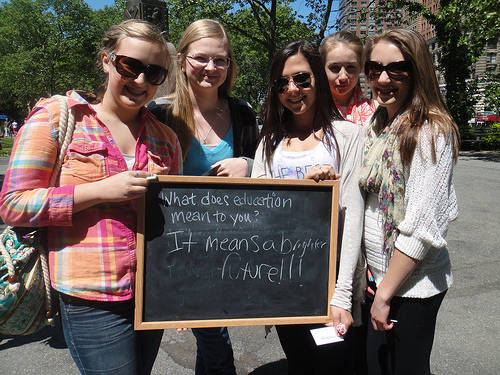 What does education
mean to you?
It means a brighter
future!!!
THE BE